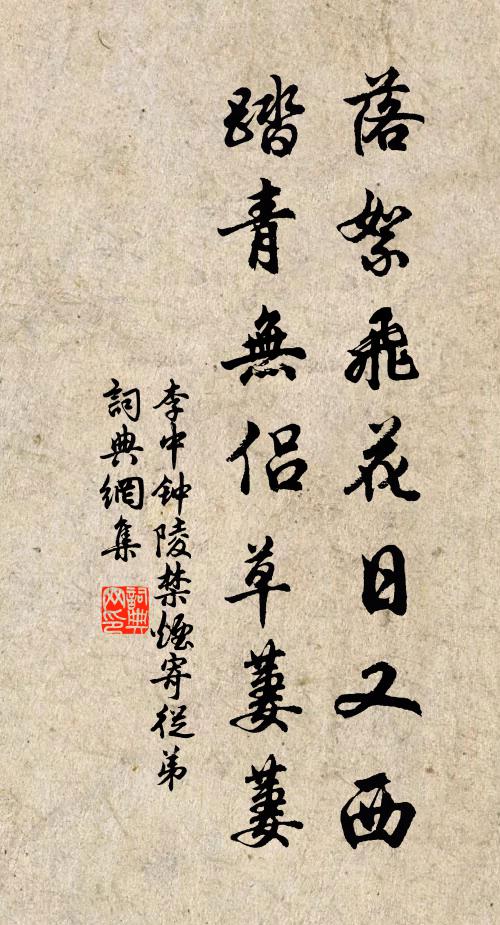 落絮飛花日又西
踏青無侶草萋萋
李中钟陵禁煙寄從弟
詞典網集
詞典网印